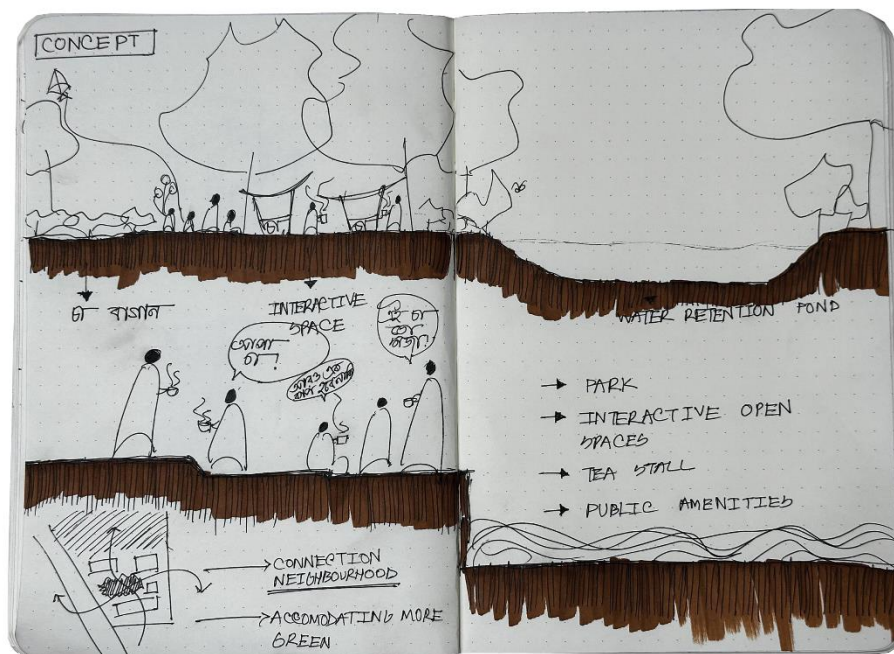 CONCEPT
চা বাগান
INTERACTIVE
SPACE
WATER RETENTION POND
চা!
PARK
INTERACTIVE OPEN
SPACES
TEA STALL
PUBLIC AMENITIES
CONNECTION
NEIGHBOURHOOD
ACCOMODATING MORE
GREEN